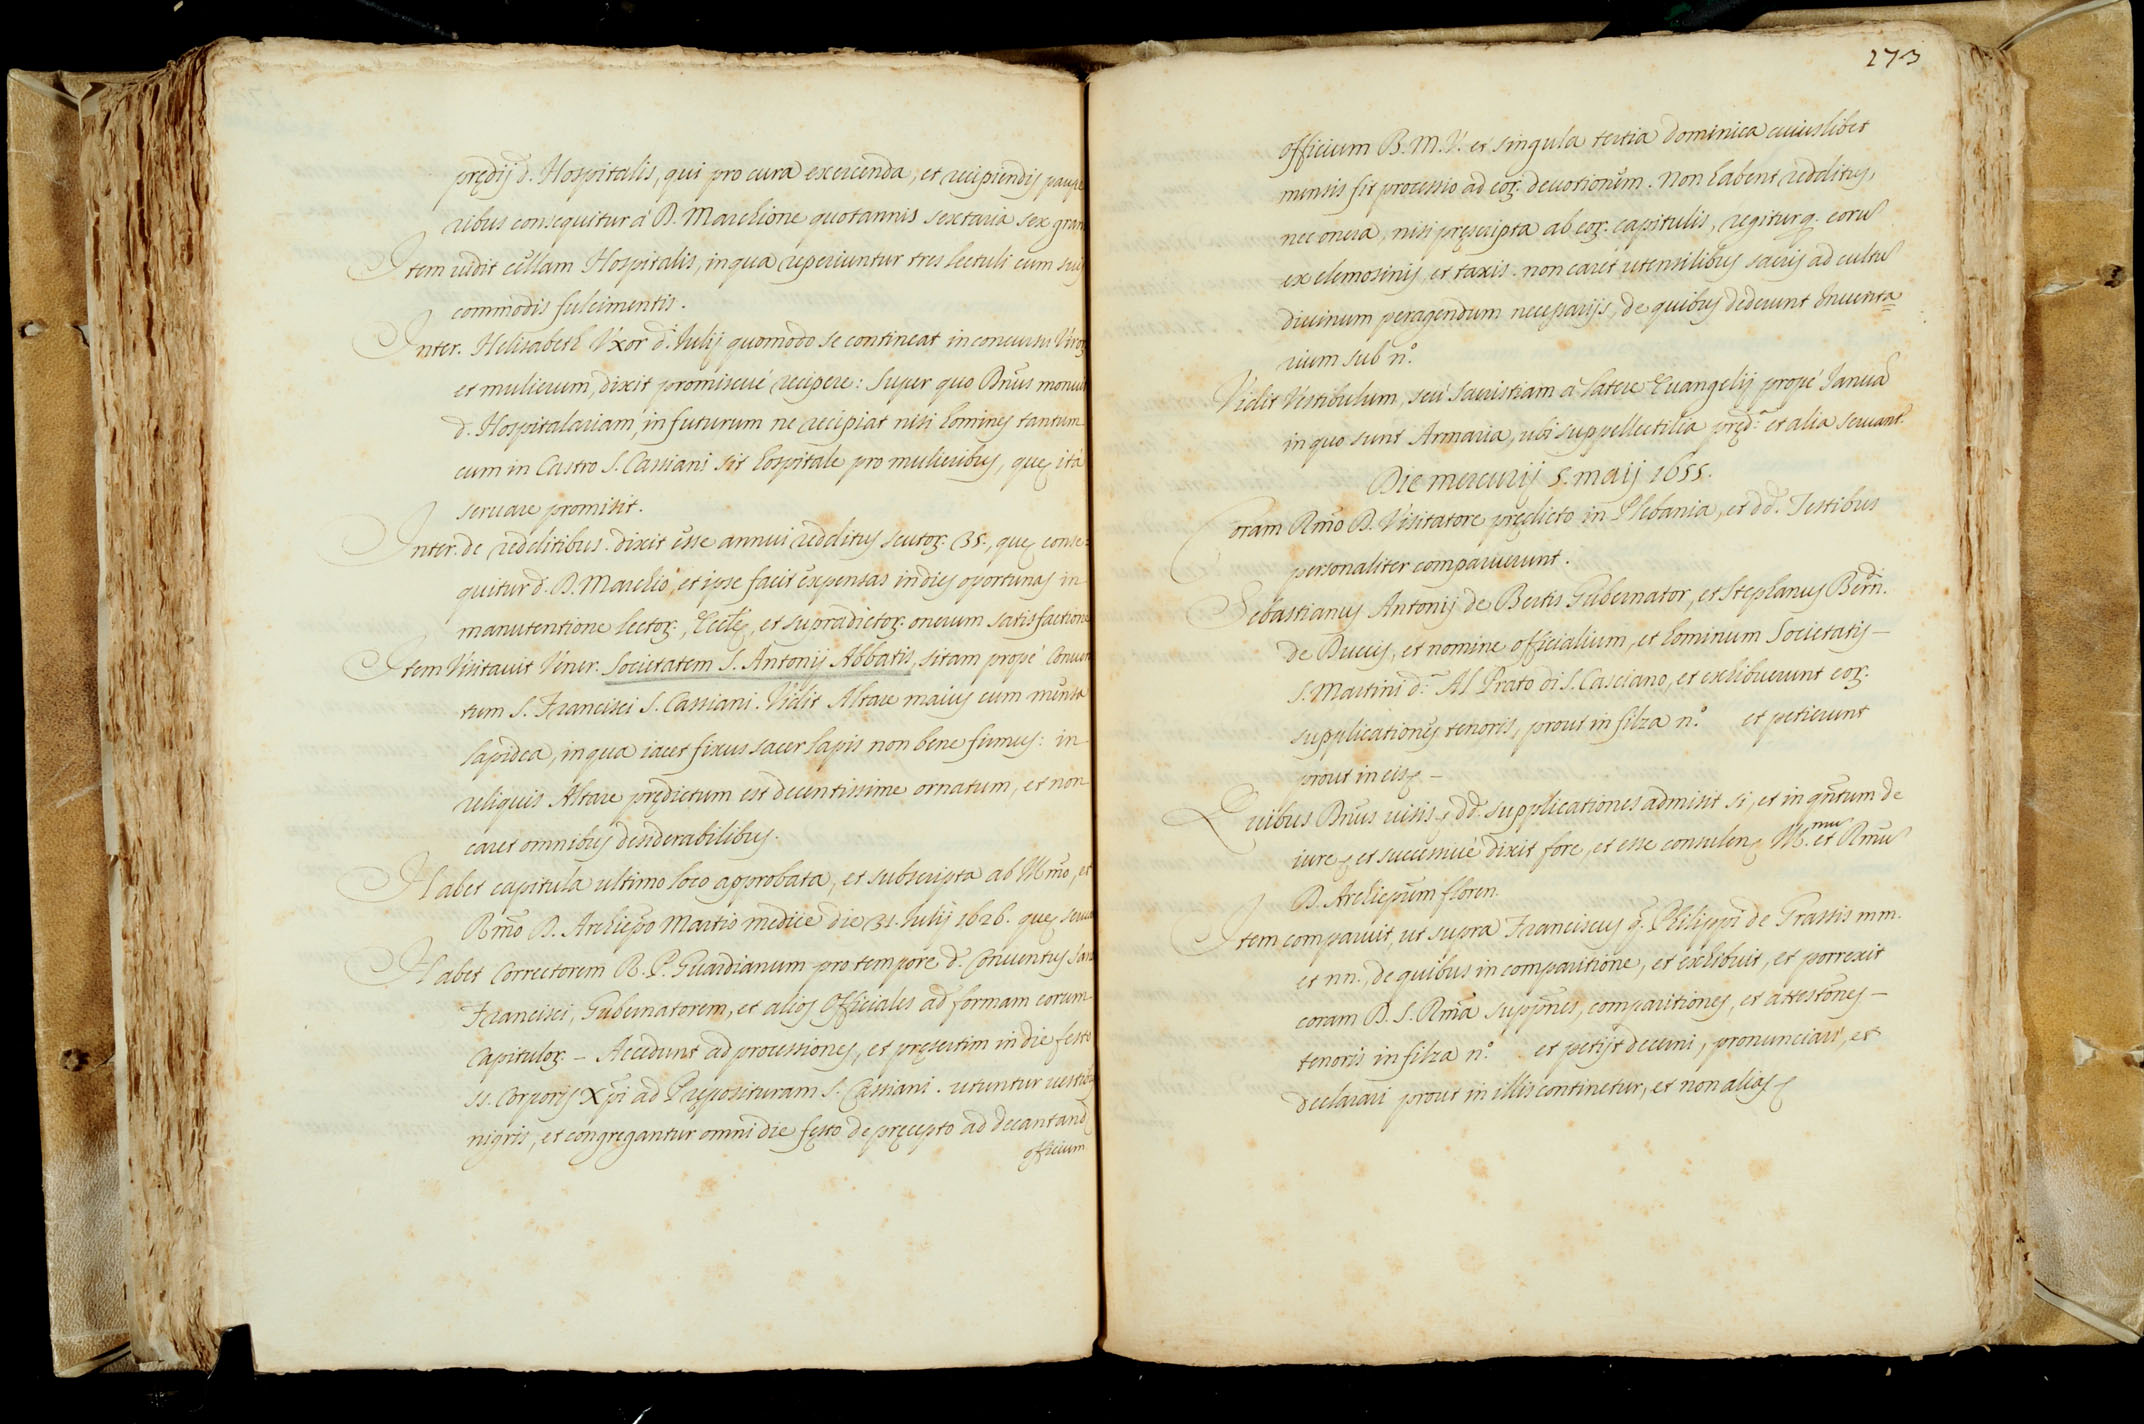 prędij d. Hospitalis, qui pro cura exercenda, et recipiendis paupe
ribus consequitur à D. Marchione quotannis sextaria sex gran
Item vidit cellam Hospitalis, in qua reperiuntur tres lectuli cum suis
commodis fulcimentis.
Inter. Helisabeth Vxor d. Iulij quomodo se contineat in concursu Viroꝝ
et mulierum, dixit promiscué recipere: super quo Dnũs monuit
d. Hospitalariam, in futurum ne recipiat nisi homines tantum
cum in Castro S. Cassiani sit hospitale pro mulieribus, quę ità
seruare promisit.
Inter. de redditibus dixit esse annui redditus scutoꝝ 35., quę conse=
quitur d. D. Marchio, et ipse facit expensas indies oportunas in
manutentione lectoꝝ, Ecclę, et supradictoꝝ onerum satisfactione
Item Visitauit Vener. Societatem S. Antonij Abbatis, sitam propé Conuen
tum S. Francisci S. Cassiani. Vidit Altare maius cum mensa
lapidea, in qua iacet fixus sacer lapis non bene firmus: in
reliquis Altare prędictum est decentissime ornatum, et non
caret omnibus desiderabilibus.
Habet capitula ultimo loco approbata, et subscripta ab Illmo, et
Rmo D. Archiepo Martio medice die 31. Iulij 1626. quę seruan
Habet Correctorem R. P. Guardianum pro tempore d. Conuentus San
Francisci, Gubernatorem, et alios Officiales ad formam eorum
Capituloꝝ – Accedunt ad processiones, et pręsertim in die festo
SS. Corporis Xpi ad Pręposituram S. Cassiani. utuntur vestibꝰ
nigris, et congregantur omni die festo de pręcepto ad decantand
officium
273
officium B. M. V. et singula tertia dominica cuiuslibet
mensis fit processio ad eoꝝ deuotionem. Non habent redditus,
nec onera, nisi pręscripta ab eoꝝ capitulis, regiturq. eorũ
ex elemosinis, et taxis. non caret utensilibus sacris ad cultũ
diuinum peragendum necessarijs, de quibus dederunt Inuenta=
rium sub n.º
Vidit Vestibulum, seú Sacristiam à latere Euangelij propé Ianuã
in quo sunt Armaria, ubi suppellectilia pręd.ª et alia seruant.
Die mercurij 5. maij 1655.
Coram Rmo D. Visitatore prędicto in Plebania, et dd. Testibus
personaliter comparuerunt.
Sebastianus Antonij de Bertis Gubernator, et Stephanus Bern.di
de Buccis, et nomine officialium, et hominum Societatis –
S. Martini d.ª Al Prato di S. Casciano, et exhibuerunt eoꝝ
supplicationes tenoris, prout in filza n.º et petierunt
prout in eisꝫ –
Quibus Dnũs visis ꝫ dd. supplicationes admisit si, et in qntum de
iure ꝫ et successiué dixit fore, et esse consulenꝫ Ill.mũ et Rmũ
D. Archiepum floren.
Item comparuit, ut supra Franciscus q. Philippi de Grassis mm.
et nn., de quibus in comparitione, et exhibuit, et porrexit
coram D. S. Rma suppnes, comparitiones, et attestõnes –
tenoris in filza n.º et petijt decerni, pronunciari, et
declarari prout in illis continetur, et non aliasꝫ